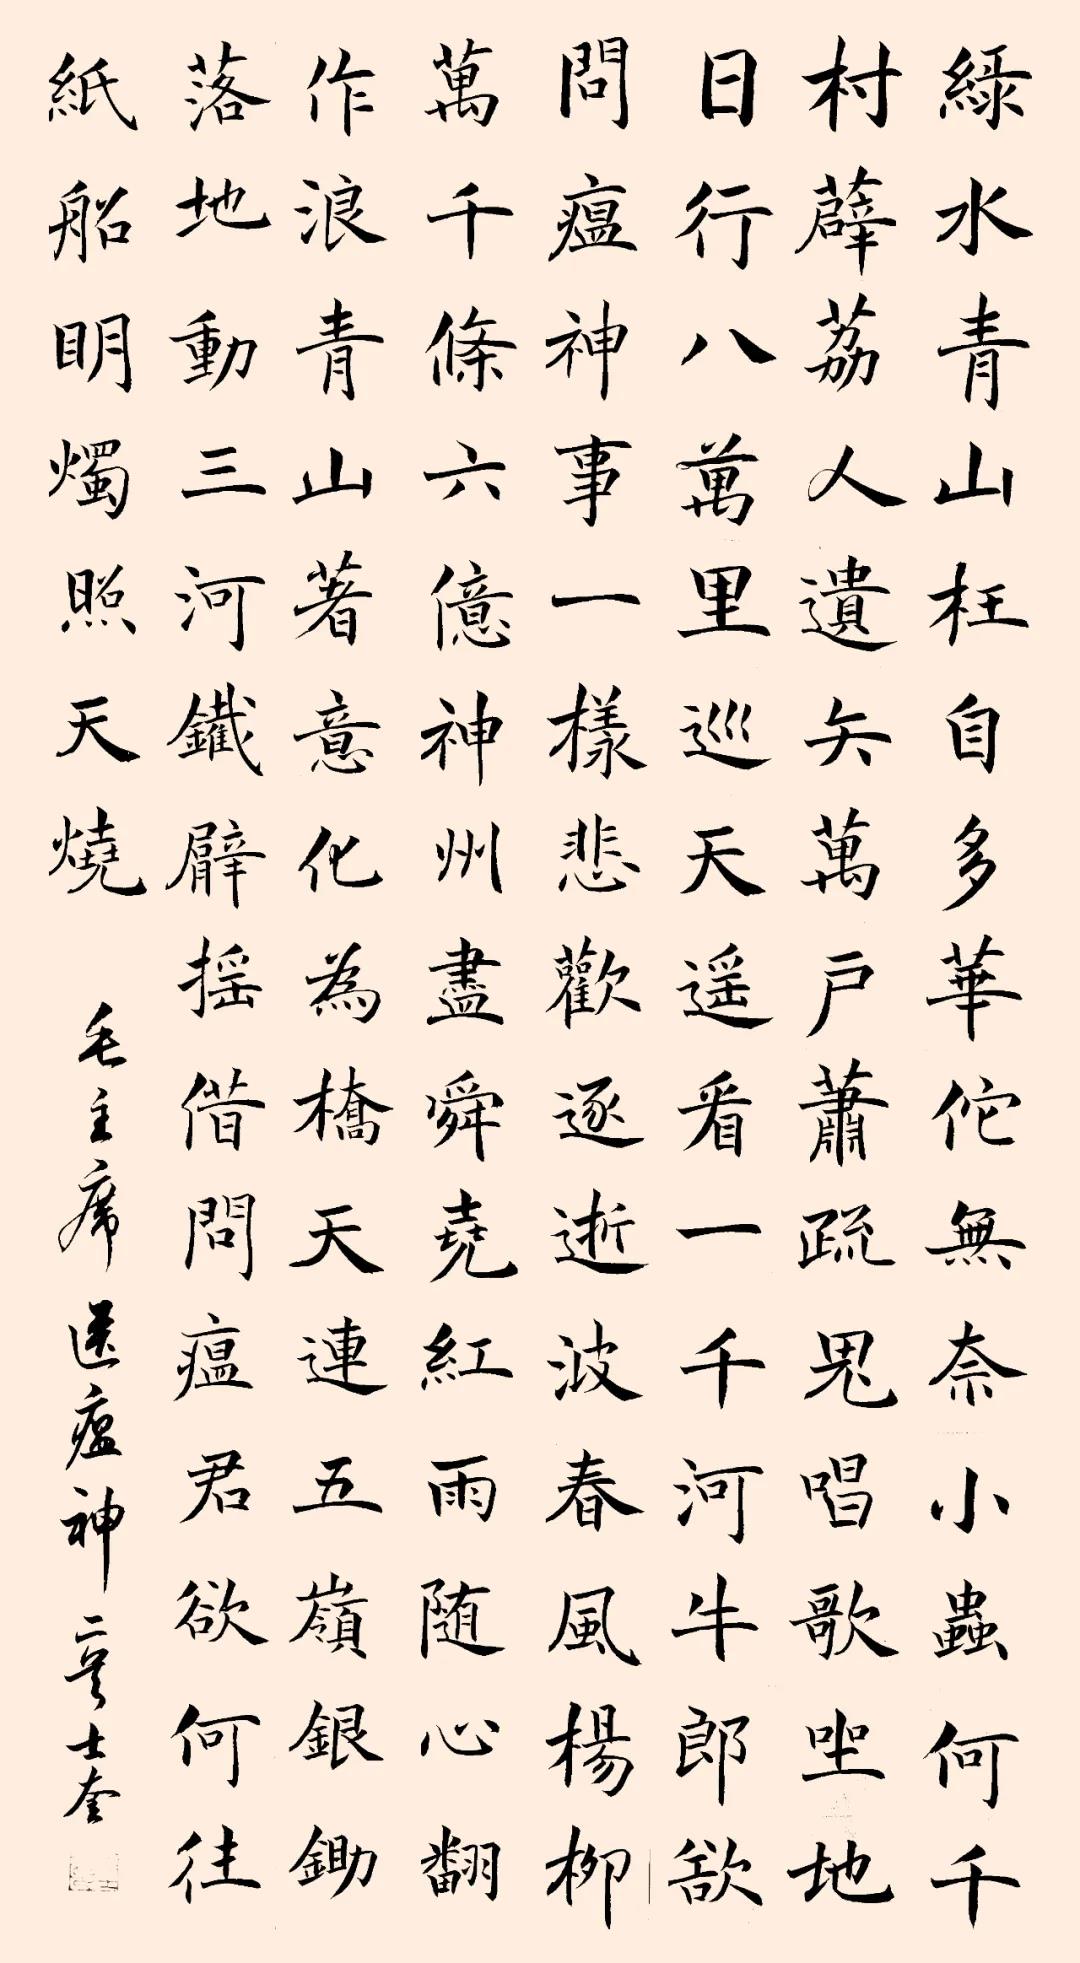 綠水青山枉自多華佗無奈小蟲何千
村薜荔人遺矢萬户蕭疏鬼唱歌坐地
日行八萬里巡天遥看一千河牛郎欲
問瘟神事一樣悲歡逐逝波春風楊柳
萬千條六億神州盡舜堯紅雨随心翻
作浪青山著意化為橋天連五嶺銀鋤
落地動三河鐵臂摇借問瘟君欲何往
紙船明燭照天燒 毛主席送瘟神二首 士奎